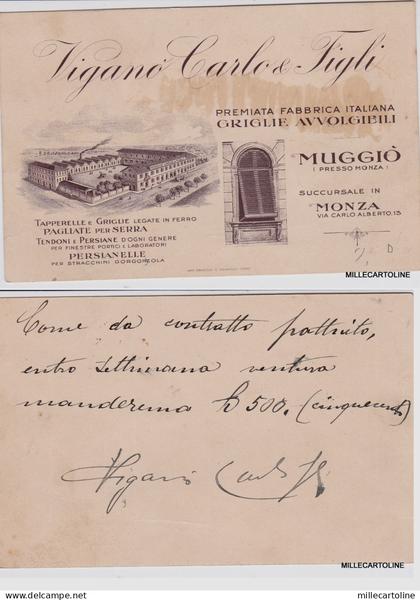 Viganò Carlo & Figli
PREMIATA FABBRICA ITALIANA
GRIGLIE AVVOLGIBILI
MUGGIÒ
(PRESSO MONZA)
SUCCURSALE IN
MONZA
VIA CARLO ALBERTO.13
TAPPERELLE E GRIGLIE LEGATE IN FERRO
PAGLIATE PER SERRA
TENDONI E PERSIANE D'OGNI GENERE
PER FINESTRE PORTICI E LABORATORI
PERSIANELLE
PER STRACCHINI GORGONZOLA
MILLECARTOLINE
Come da contratto pattuito,
entro settimana ventura
manderemo £ 500. (cinquecento)
Viganò Carlo
MILLECARTOLINE
delcampe.net
millecartoline